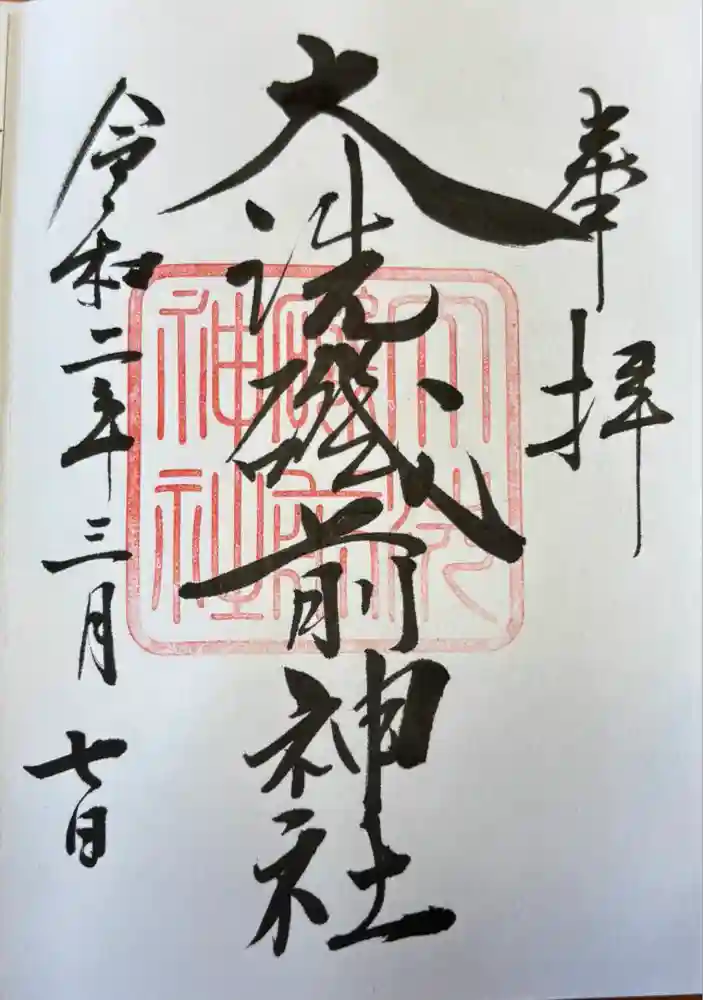 奉拝
大洗磯前神社
大洗磯前神社
令和二年三月七日